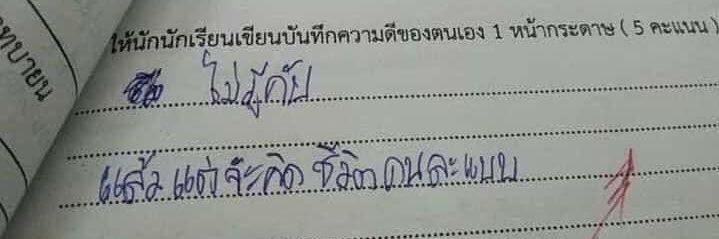 ทบายน
ให้นักนักเรียนเขียนบันทึกความดีของตนเอง 1 หน้ากระดาษ ( 5 คะแนน )
ไม่รู้ครับ
แล้วแต่จะคิด ชีวิตคนละแบบ